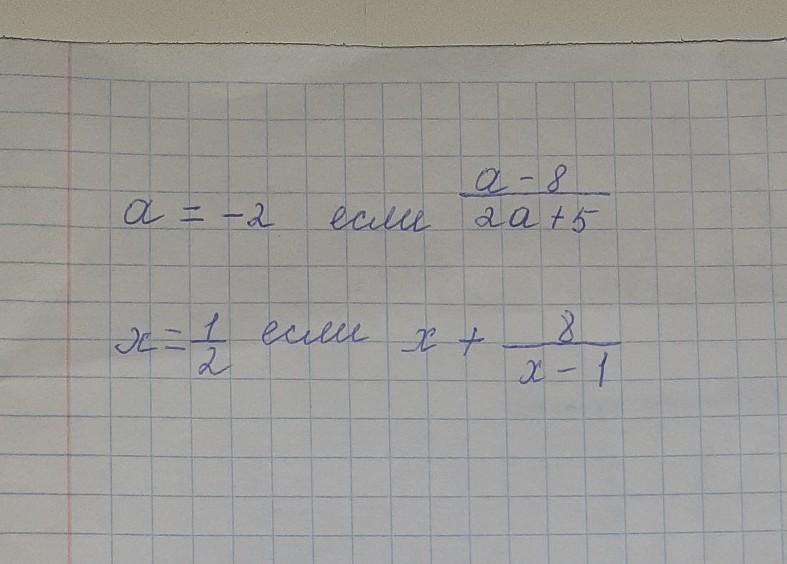 a = -2 если (a - 8)/(2a + 5)
x = 1/2 если x + 8/(x - 1)